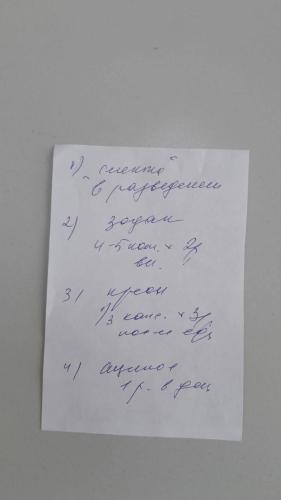 1) "Смекта"
в разведении
2) Зодак
4-5 кап. × 2р
вн. !
3) Креон
1/3 капс. × 3р
после еды
4) Аципол
1 р. в день